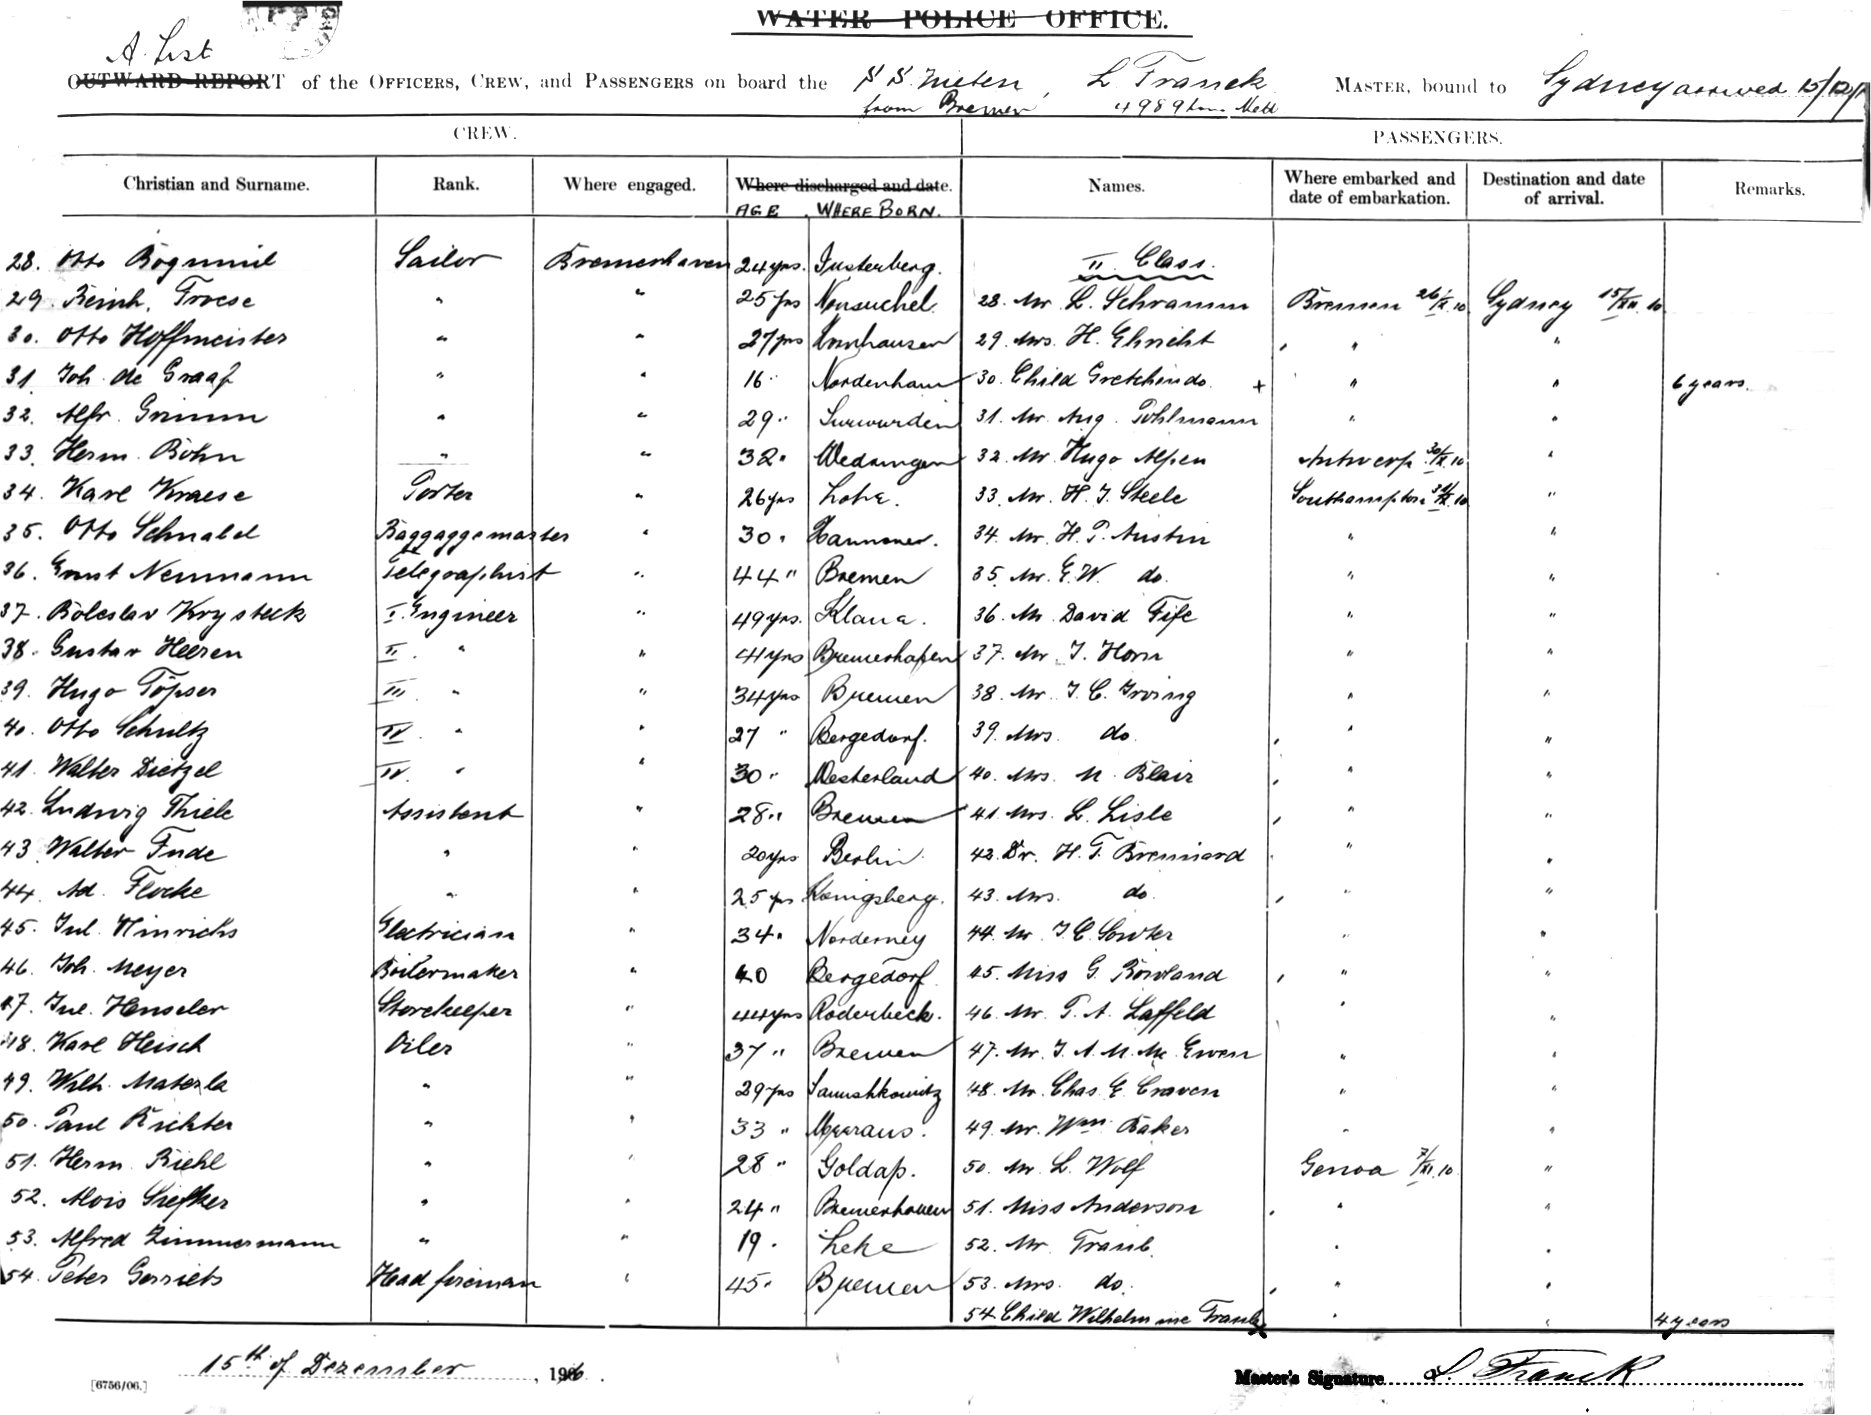 WATER POLICE OFFICE.
A List
OUTWARD REPORT of the OFFICERS, CREW, and PASSENGERS on board the S S. Zieten, L Franck MASTER, bound to Sydney arrived 15/12/
from Bremen 4989 tons
CREW. PASSENGERS.
Christian and Surname. Rank. Where engaged. Where discharged and date. Names. Where embarked and date of embarkation. Destination and date of arrival. Remarks.
AGE WHERE BORN.
28. Otto Bogumil Sailor Bremerhaven 24 yrs. Insterberg. II Class.
29. Reinh. Froese " " 25 yrs 28. Mr. L. Schramm Bremen 26/X.10 Sydney 15/XII.10
30. Otto Hoffmeister " " 27 yrs 29. Mrs. H. Ehricht " "
31. Joh. de Graaf " " 16 " Nordenham 30. Child Gretchen do. + " " 6 years.
32. Alfr. Grimm " " 29 " Surwürden 31. Mr. Aug. Pohlmann " "
33. Herm. Böhn " " 32 " 32. Mr. Hugo Alpen Antwerp 30/X.10 "
34. Karl Kraese Porter " 26 yrs Lohe. 33. Mr. H. J. Steele Southampton 31/X.10 "
35. Otto Schnabel Baggagemaster " 30 " Hannover. 34. Mr. H. P. Austin " "
36. Ernst Neumann Telegraphist " 44 " Bremen 35. Mr. E. W. do. " "
37. Boleslav Krysteck I. Engineer " 49 yrs. 36. Mr. David Fife " "
38. Gustav Heeren II. " " 41 yrs Bremerhafen 37. Mr. J. Horn " "
39. Hugo Töpser III " " 34 yrs Bremen 38. Mr. J. C. Irving " "
40. Otto Schultz IV. " " 27 " Bergedorf. 39. Mrs. do. " "
41. Walter Dietzel IV. " " 30 " Westerland 40. Mrs. M. Blair " "
42. Ludwig Thiele Assistent " 28 " Bremen 41. Mrs. L. Lisle " "
43. Walter Fude " " 20 yrs Berlin. 42. Dr. H. F. Brennard " "
44. Ad. Flocke " " 25 yrs Königsberg. 43. Mrs. do. " "
45. Jul. Hinrichs Electrician " 34 " Norderney 44. Mr. J. C. Sowter " "
46. Joh. Meyer Boilermaker " 40 Bergedorf 45. Miss G. Rowland " "
47. Jul. Henseler Storekeeper " 44 yrs Röderbeck. 46. Mr. P. A. Laffeld " "
48. Karl Heisch Oiler " 37 " Bremen 47. Mr. J. A. M. Mc Ewen " "
49. Wilh. Materla " " 29 yrs 48. Mr. Chas E. Craven " "
50. Paul Richter " " 33 " 49. Mr. Wm. Baker " "
51. Herm. Riehl " " 28 " Goldap. 50. Mr. L. Wolf Genoa 7/XI.10. "
52. Alois Siefker " " 24 " Bremerhaven 51. Miss Anderson " "
53. Alfred Zimmermann " " 19 " Lehe 52. Mr. Traub. " "
54. Peter Gerriets Head fireman " 45 " Bremen 53. Mrs. do. " "
54. Child Wilhelmine Traub x " " 4 years
15th of Dezember, 19
[6756/06.] Master's Signature L. Franck